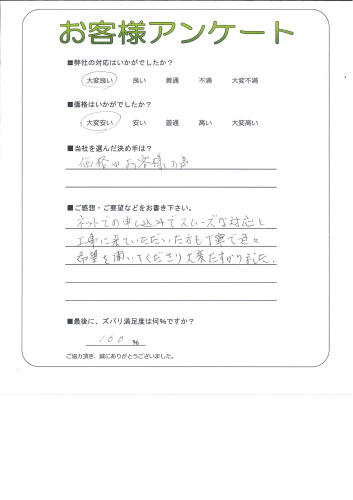 お客様アンケート
■弊社の対応はいかがでしたか？
大変良い 良い 普通 不満 大変不満
■価格はいかがでしたか？
大変安い 安い 普通 高い 大変高い
■当社を選んだ決め手は？
価格やお客様の声
■ご感想・ご要望などをお書き下さい。
ネットでの申し込みでスムーズな対応と
工事に来ていただいた方も丁寧で色々
希望を聞いてくださり大変たすかりました。
■最後に、ズバリ満足度は何％ですか？
100 %
ご協力頂き、誠にありがとうございました。